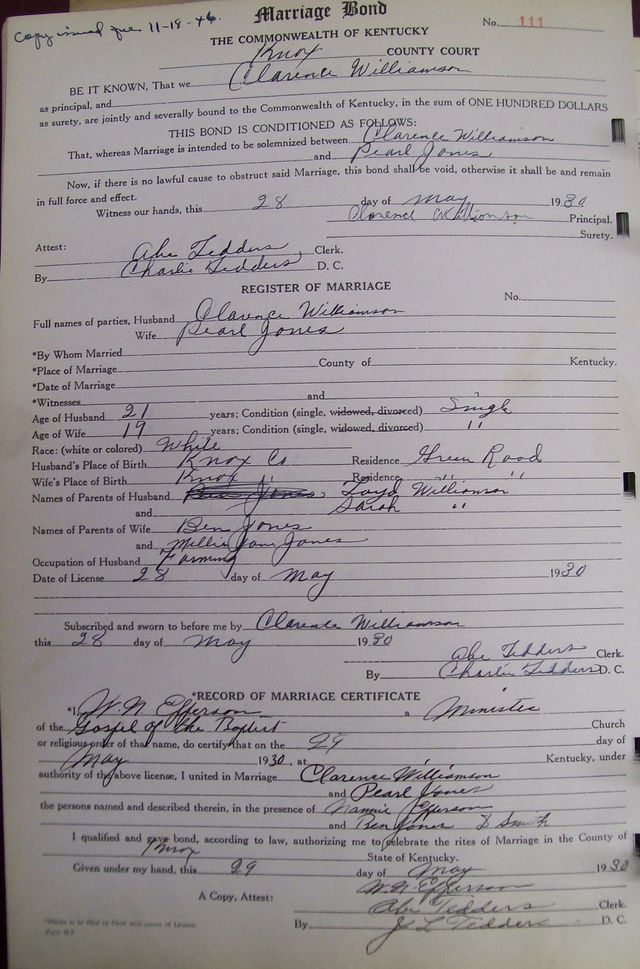 Copy issued 11-18-46
Marriage Bond
No. 111
THE COMMONWEALTH OF KENTUCKY
Knox COUNTY COURT
BE IT KNOWN, That we Clarence Williamson
as principal, and
as surety, are jointly and severally bound to the Commonwealth of Kentucky, in the sum of ONE HUNDRED DOLLARS
THIS BOND IS CONDITIONED AS FOLLOWS:
That, whereas Marriage is intended to be solemnized between Clarence Williamson
and Pearl Jones
Now, if there is no lawful cause to obstruct said Marriage, this bond shall be void, otherwise it shall be and remain
in full force and effect.
Witness our hands, this 28 day of May 1930
Clorence Williamson Principal.
Surety.
Attest: Abe Tedders Clerk.
By Charlie Tedders D. C.
REGISTER OF MARRIAGE
No.
Full names of parties, Husband Clarence Williamson
Wife Pearl Jones
*By Whom Married
*Place of Marriage County of Kentucky.
*Date of Marriage
*Witnesses and
Age of Husband 21 years; Condition (single, widowed, divorced) Single
Age of Wife 19 years; Condition (single, widowed, divorced) "
Race: (white or colored) White
Husband's Place of Birth Knox Co Residence Green Road
Wife's Place of Birth Knox " Residence " "
Names of Parents of Husband Ben Jones Loyd Williamson
and Sarah "
Names of Parents of Wife Ben Jones
and Millie Jane Jones
Occupation of Husband Farming
Date of License 28 day of May 1930
Subscribed and sworn to before me by Clarence Williamson
this 28 day of May 1930
Abe Tedders Clerk.
By Charlie Tedders D. C.
*RECORD OF MARRIAGE CERTIFICATE
*I, W. N. Epperson a Minister
of the Gospel of the Baptist Church
or religious order of that name, do certify that on the 29 day of
May 1930, at Kentucky, under
authority of the above license, I united in Marriage Clarence Williamson
and Pearl Jones
the persons named and described therein, in the presence of Nannie Epperson
and Ben Jones D Smith
I qualified and gave bond, according to law, authorizing me to celebrate the rites of Marriage in the County of
Knox State of Kentucky.
Given under my hand, this 29 day of May 1930
W. N. Epperson
A Copy, Attest: Abe Tedders Clerk.
By J L Tedders D. C.